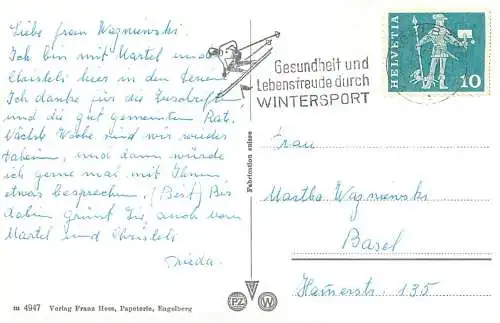 Liebe Frau Wazniewski.
Ich bin mit Martel und
Christeli hier in den Ferien
Ich danke für die Zuschrift
und die gut gemeinten Rat.
Nächste Woche sind wir wieder
daheim, und dann würde
ich gerne mal mit Ihnen
etwas besprechen. (Beit) Bis
dahin grüsst Sie, auch von
Martel und Christeli
Frieda.
m 4947 Verlag Franz Hess, Papeterie, Engelberg
Fabrication suisse
PZ W
Gesundheit und
Lebensfreude durch
WINTERSPORT
HELVETIA
10
Frau
Martha Wazniewski
Basel
Hamerstr. 135